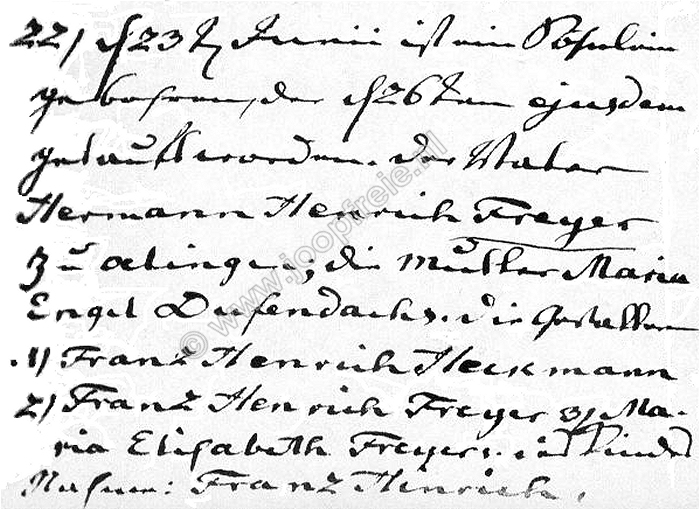 22) d 23t Junii ist ein Söhnlein
gebohren, der d 26ten ejusdem
getauft worden. der Vater
Hermann Henrich Freyer
zu die Mutter Maria
Engel Dufendachs. die Gevattern
1) Franz Henrich Heckmann
2) Franz Henrich Freyer 3) Ma-
ria Elisabeth Freyers. des Kindes
Nahme: Franz Henrich.
© www.joopfreie.nl